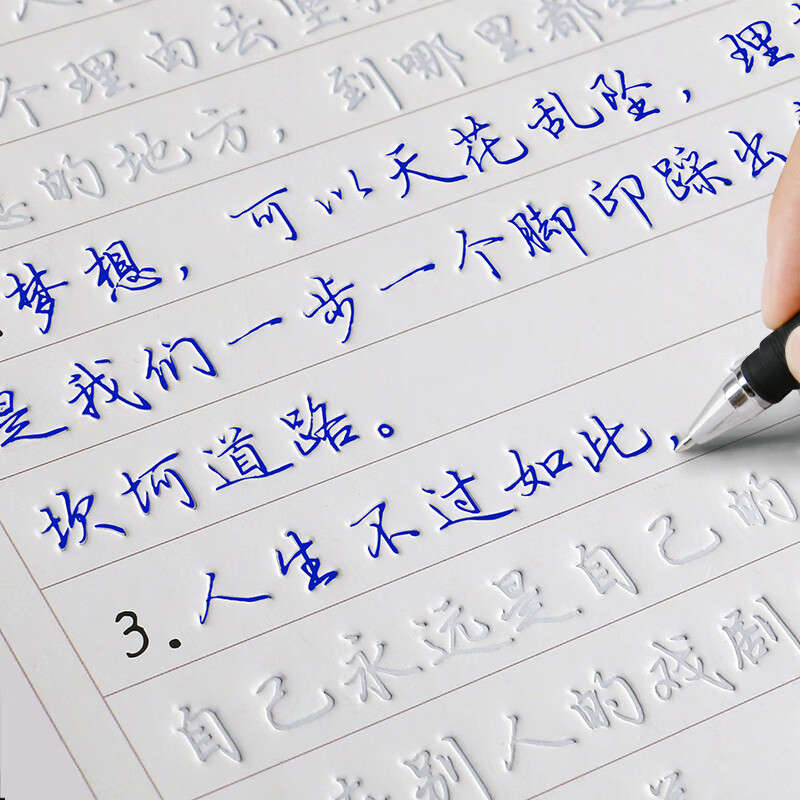 个理由去坚
的地方，到哪里都是
梦想，可以天花乱坠，理
是我们一步一个脚印踩出
坎坷道路。
3.人生不过如此，
自己永远是自己的
别人的戏剧